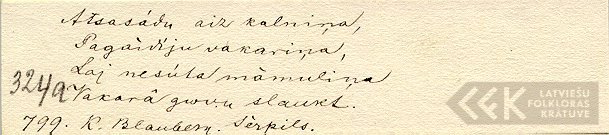 Atsasádu aiz kalniņa,
Pagáidiju vakariņa,
Laj nesúta mámuliņa
3249 Vakará gwvu slaukt.
799. K. Blauberg. Sērpils.
LATVIEŠU
FOLKLORAS
KRĀTUVE